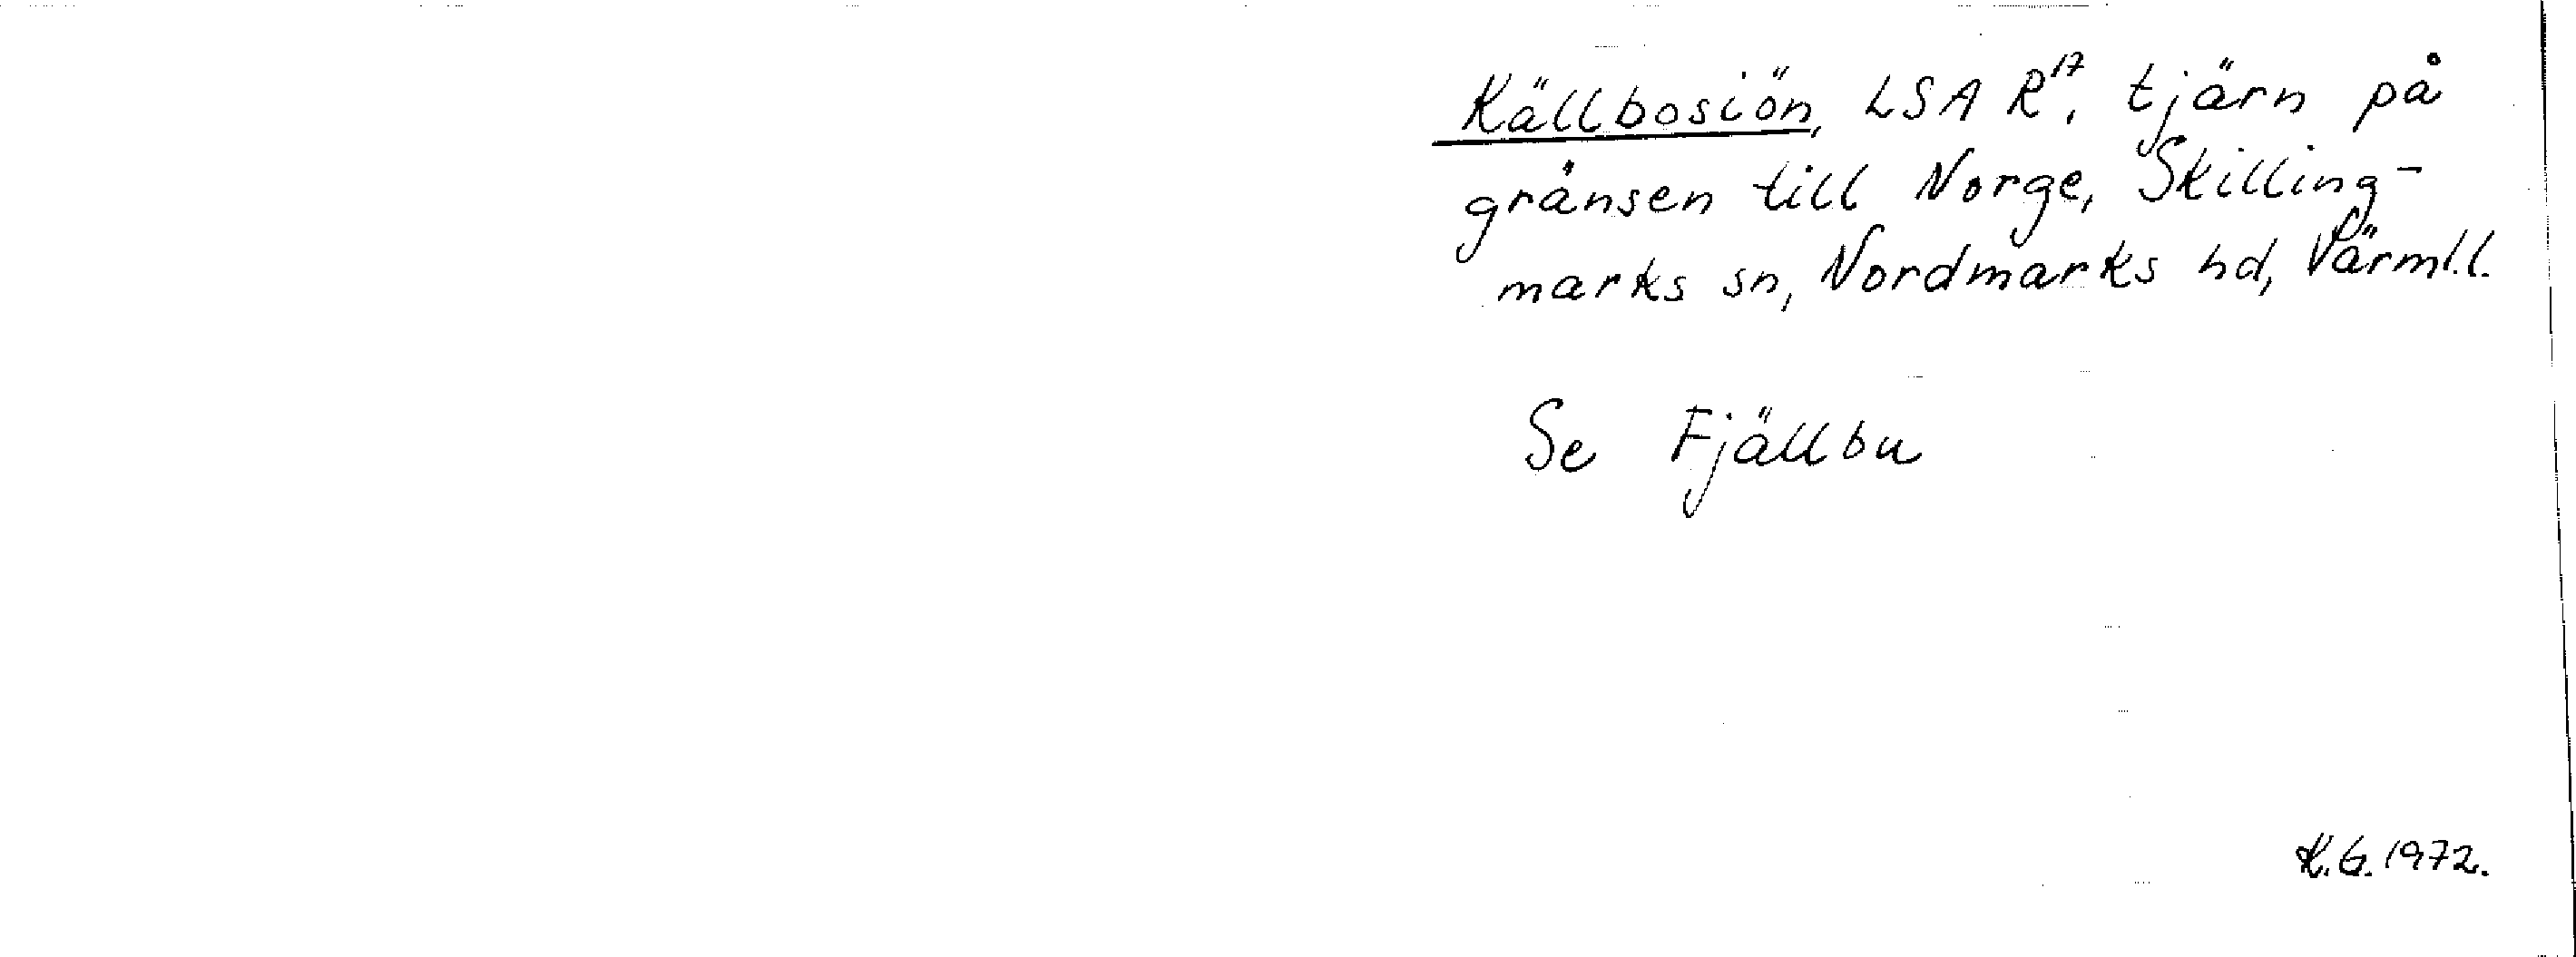 Källbosiön, LSA R¹⁷, tjärn på
gränsen till Norge, Skilling-
marks sn, Nordmarks hd, Värml.l.
Se Fjällbu
K.G. 1972.